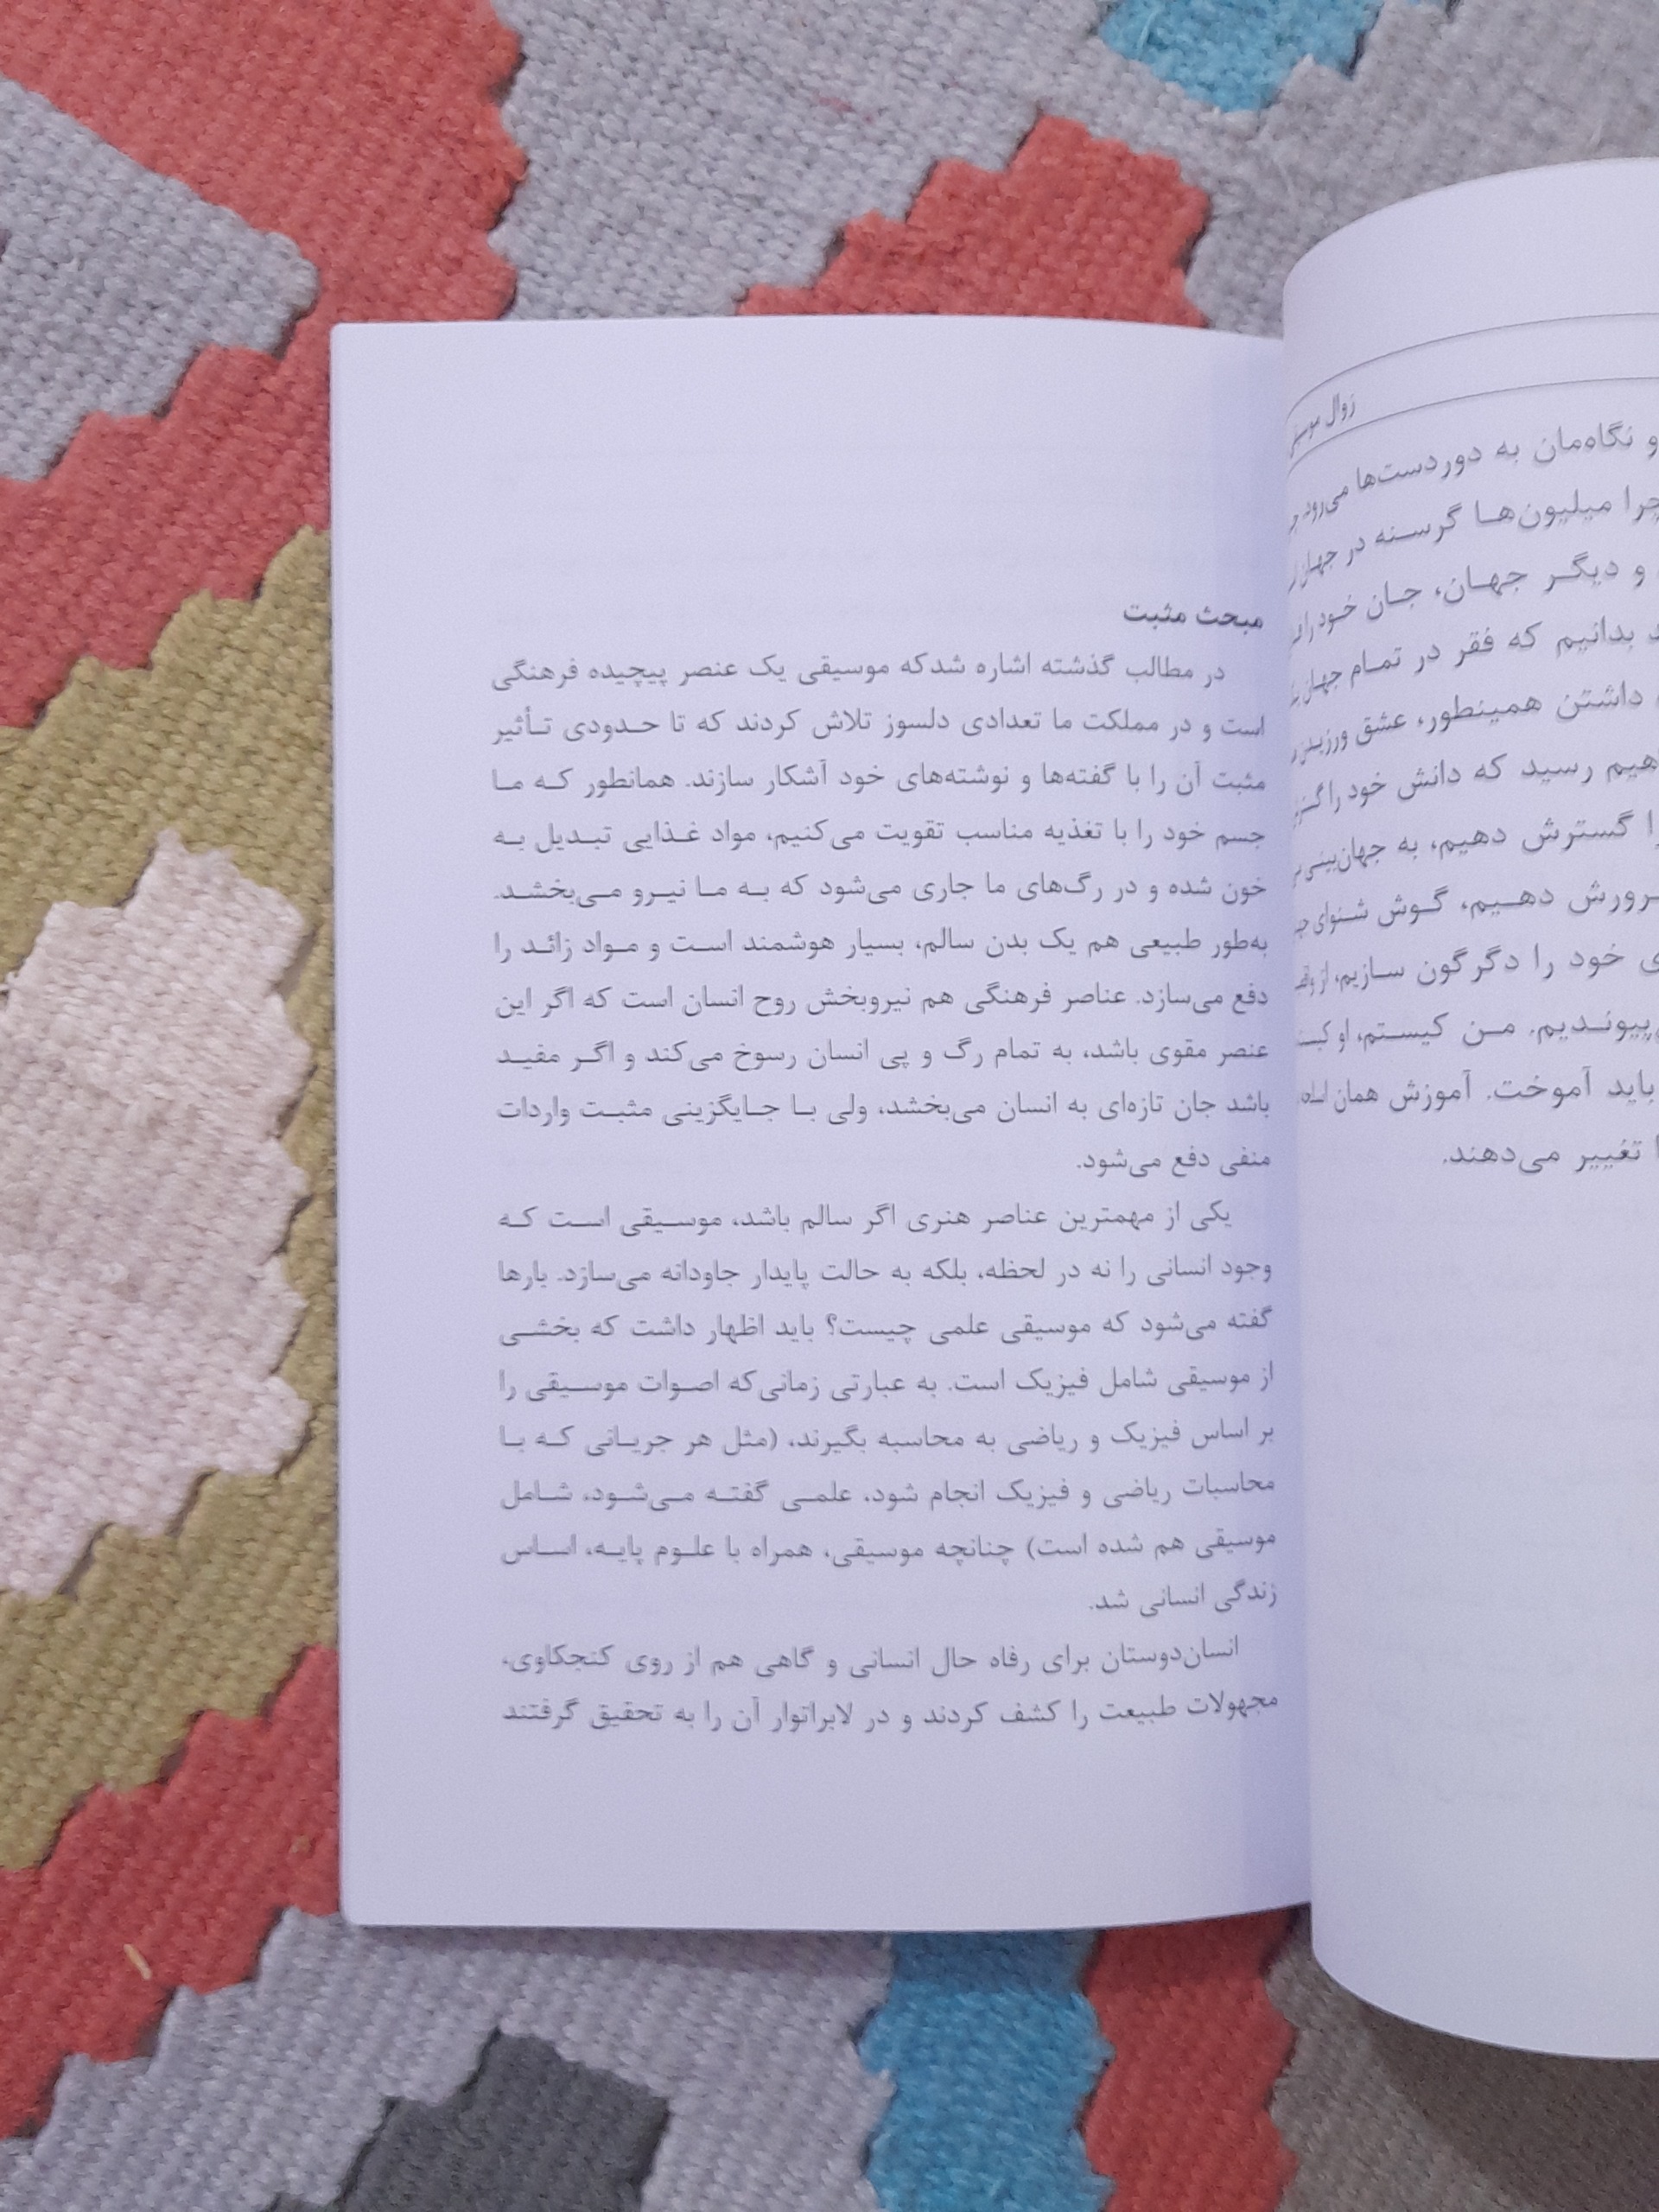 زوال موسیقی
و نگاه‌مان به دوردست‌ها می‌رود
چرا میلیون‌ها گرسنه در جهان
و دیگر جهان، جان خود را
بدانیم که فقر در تمام جهان
داشتن همینطور، عشق ورزیدن
رسید که دانش خود را
گسترش دهیم، به جهان‌بینی
دهیم، گوش شنوای
خود را دگرگون سازیم، از
من کیستم، او کیست
باید آموخت. آموزش همان
تغییر می‌دهند.
مبحث مثبت
در مطالب گذشته اشاره شدکه موسیقی یک عنصر پیچیده فرهنگی
است و در مملکت ما تعدادی دلسوز تلاش کردند که تا حدودی تأثیر
مثبت آن را با گفته‌ها و نوشته‌های خود آشکار سازند. همانطور که ما
جسم خود را با تغذیه مناسب تقویت می‌کنیم، مواد غذایی تبدیل به
خون شده و در رگ‌های ما جاری می‌شود که به ما نیرو می‌بخشد.
به‌طور طبیعی هم یک بدن سالم، بسیار هوشمند است و مواد زائد را
دفع می‌سازد. عناصر فرهنگی هم نیروبخش روح انسان است که اگر این
عنصر مقوی باشد، به تمام رگ و پی انسان رسوخ می‌کند و اگر مفید
باشد جان تازه‌ای به انسان می‌بخشد، ولی با جایگزینی مثبت واردات
منفی دفع می‌شود.
یکی از مهمترین عناصر هنری اگر سالم باشد، موسیقی است که
وجود انسانی را نه در لحظه، بلکه به حالت پایدار جاودانه می‌سازد. بارها
گفته می‌شود که موسیقی علمی چیست؟ باید اظهار داشت که بخشی
از موسیقی شامل فیزیک است. به عبارتی زمانی‌که اصوات موسیقی را
بر اساس فیزیک و ریاضی به محاسبه بگیرند، (مثل هر جریانی که با
محاسبات ریاضی و فیزیک انجام شود، علمی گفته می‌شود، شامل
موسیقی هم شده است) چنانچه موسیقی، همراه با علوم پایه، اساس
زندگی انسانی شد.
انسان‌دوستان برای رفاه حال انسانی و گاهی هم از روی کنجکاوی،
مجهولات طبیعت را کشف کردند و در لابراتوار آن را به تحقیق گرفتند